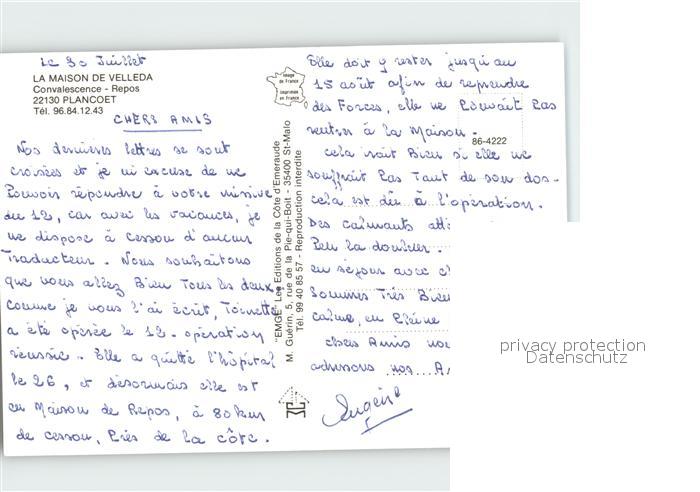 Le 30 Juillet
LA MAISON DE VELLEDA
Convalescence - Repos
22130 PLANCOET
Tél. 96.84.12.43
CHERS AMIS
Nos dernières lettres se sont
croisées et je m'excuse de ne
Pouvoir répondre à votre missive
du 12, car avec les vacances, je
ne dispose à cesson d'aucun
Traducteur. Nous souhaitons
que vous allez Bien Tous les deux.
comme je vous l'ai écrit, Toinette
a été opérée le 12. opération
réussie. Elle a quitté l'hôpital
le 26, et désormais elle est
en Maison de Repos, à 80 km
de cesson, Près de la côte.
Image de France
Imprimé en France
"EMGE" Les Editions de la Côte d'Emeraude
M. Guérin, 5, rue de la Pie-qui-Boit - 35400 St-Malo
Tél. 99 40 85 57 - Reproduction interdite
Elle doit y rester jusqu'au
15 août afin de reprendre
des Forces, elle ne Pouvait Pas
rentrer à la Maison.
86-4222
cela irait Bien si elle ne
souffrait Pas Tant de son dos-
cela est dû à l'opération.
Des calmants
Peu la douleur.
en séjour avec
Sommes Très Bien
calme, en Pleine
chers Amis
adressons nos
Eugène
privacy protection
Datenschutz